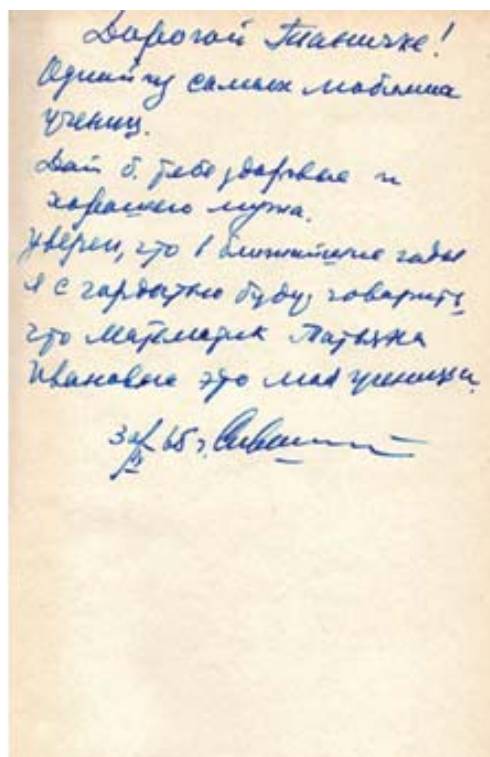 Дорогой Таничке!
Одной из самых любимых
учениц.
Дай б. тебе здоровье и
хорошего мужа.
Уверен, что в ближайшие годы
я с гордостью буду говорить
что математик Татьяна
Ивановна это моя ученица.
65 г.